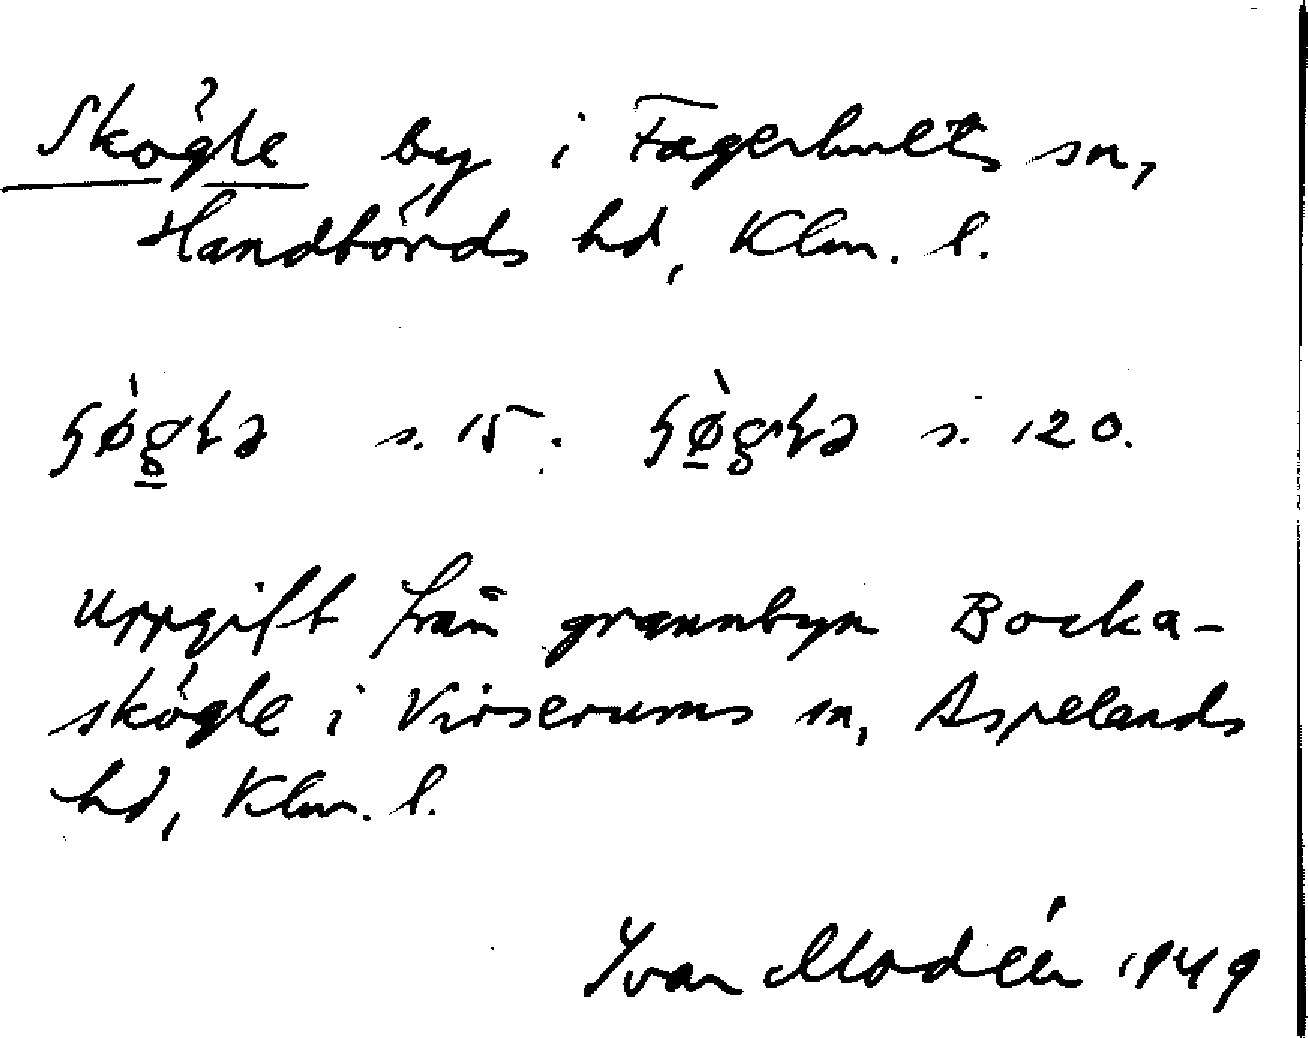 Skögle by i Fagerhults sn,
Handbörds hd, Klm. l.
s. 15. s. 120.
Uppgift från grannbyn Bocka-
skögle i Virserums sn, Aspelands
hd, Klm. l.
Yvar Modéer 1949